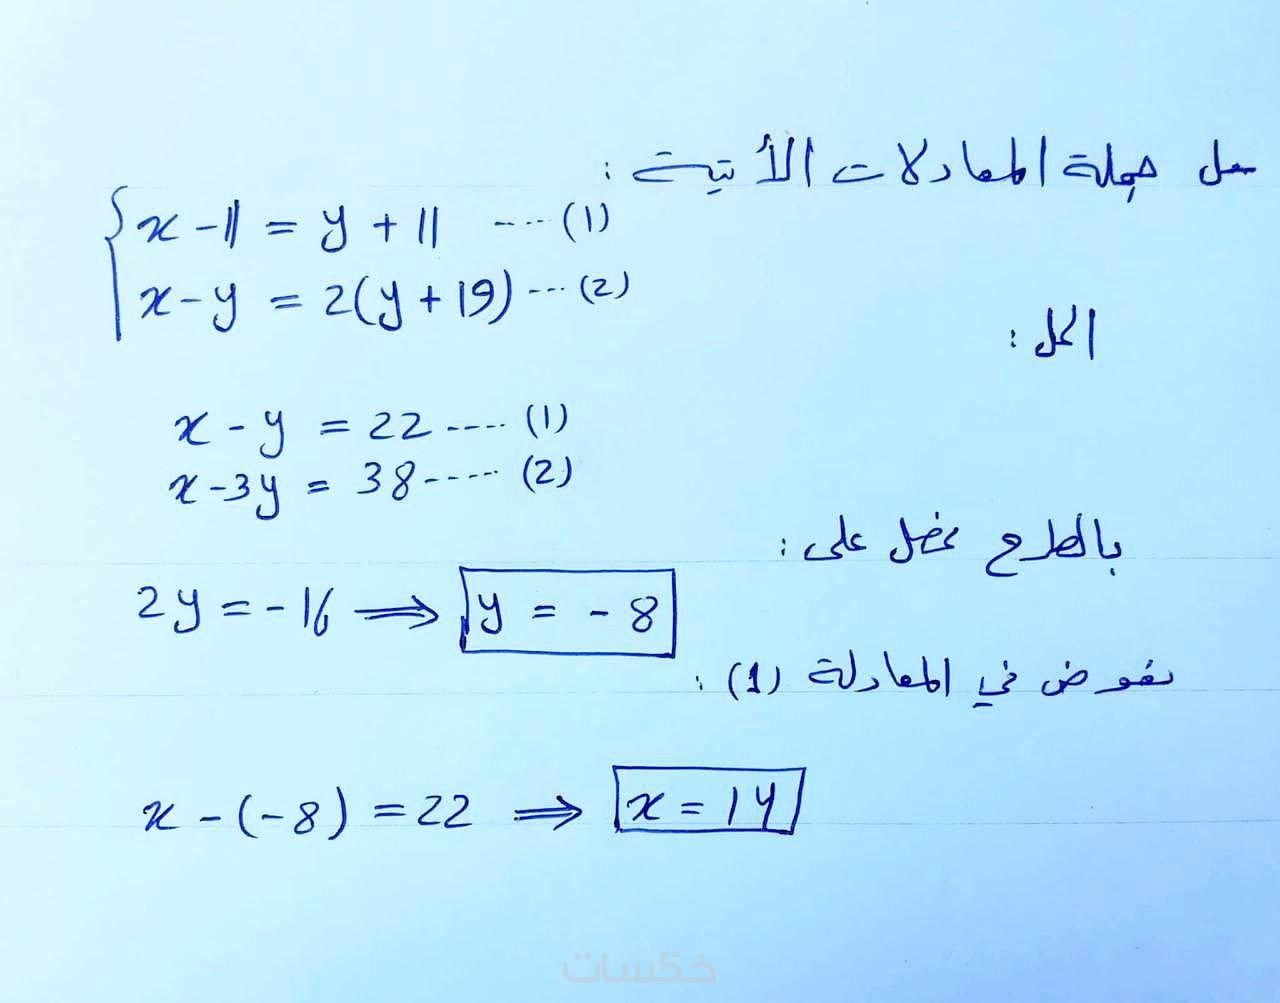 حل جملة المعادلات الأتية :
x - 11 = y + 11 ---- (1)
x - y = 2(y + 19) --- (2)
الحل :
x - y = 22 ---- (1)
x - 3y = 38 ---- (2)
بالطرح نحصل على :
2y = - 16 ⟹ y = - 8
نعوض في المعادلة (1) :
x - (-8) = 22 ⟹ x = 14
خمسات